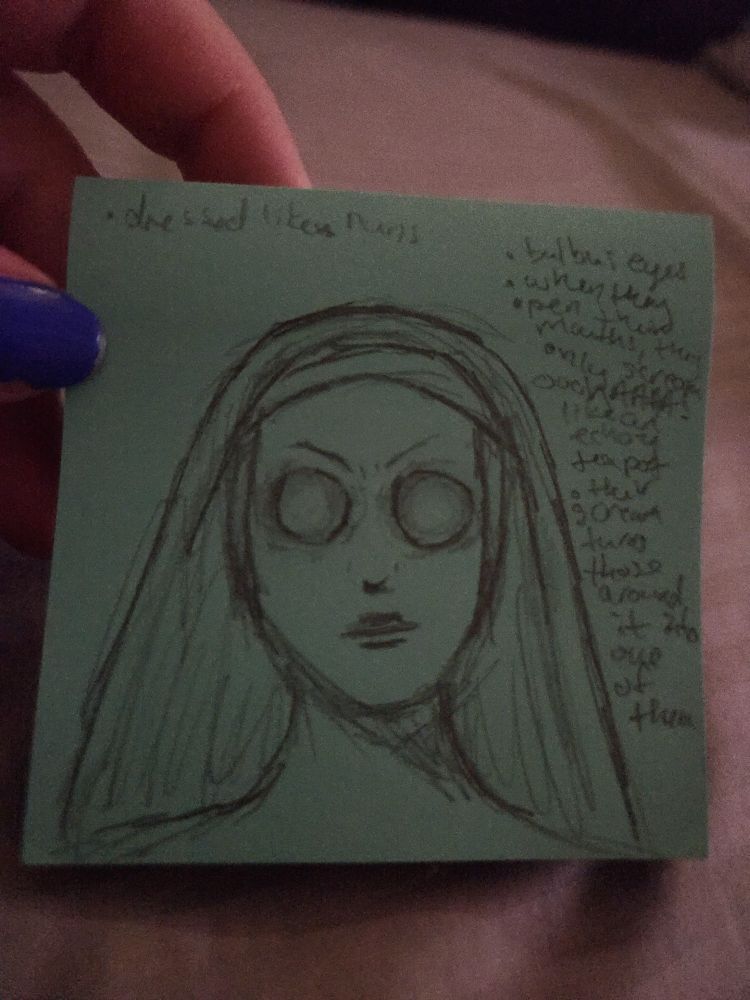 • dressed like nuns
• bulbus eyes
• when they
• open their
mouths, they
only scream
oooHAAAA!
like an
echoy
teapot
• their
scream
turns
those
around
it into
one
of
them